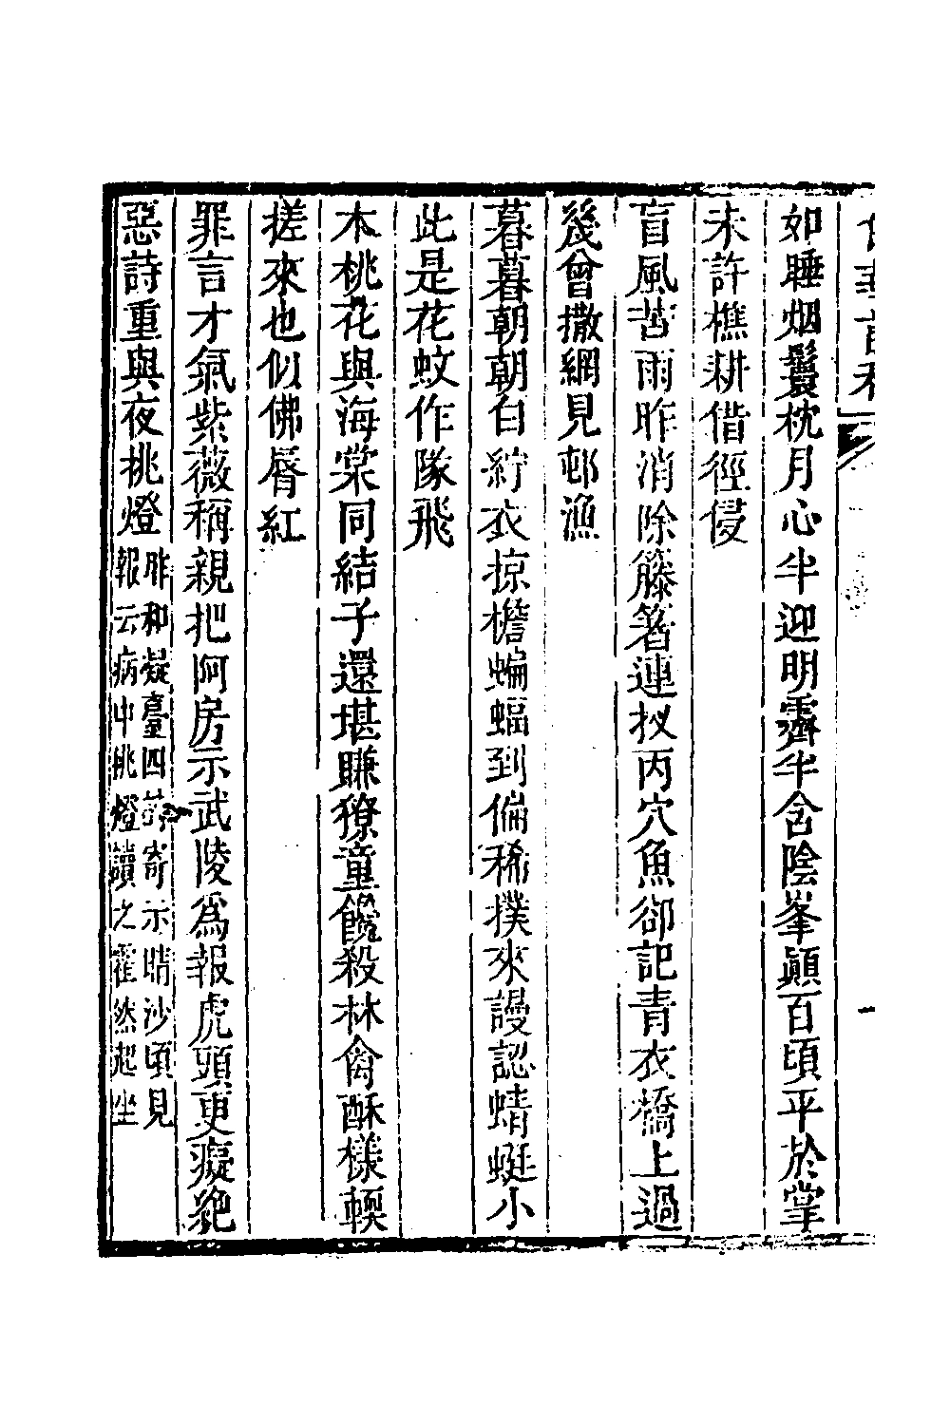 如睡烟鬟枕月心半迎明霽半含陰峯顛百頃平於掌
未許樵耕借徑侵
盲風苦雨昨消除籐箸連扠丙穴魚卻記青衣橋上過
幾曾撒網見邨漁
暮暮朝朝白紵衣掠檐蝙蝠到偏稀撲來謾認蜻蜓小
此是花蚊作隊飛
木桃花與海棠同結子還堪賺獠童饞殺林禽酥樣輭
搓來也似佛脣紅
罪言才氣紫薇稱親把阿房示武陵爲報虎頭更癡絶
惡詩重與夜挑燈
昨和凝臺四詩寄示晴沙頃見
報云病中挑燈讀之霍然起坐